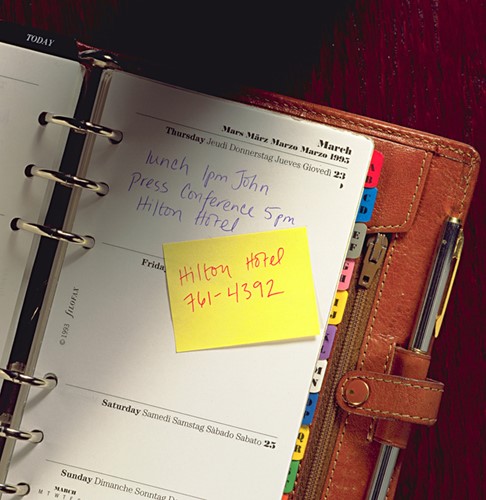 TODAY
March
Mars März Marzo Marzo 1995
Thursday Jeudi Donnerstag Jueves Giovedì 23
lunch 1pm John
Press Conference 5pm
Hilton Hotel
Frida
Hilton Hotel
761-4392
© 1993 filofax
Saturday Samedi Samstag Sàbado Sabato 25
Sunday Dimanche Sonntag D
MARCH
M T W T F
A
B
C
D
E
F
G
H
I
J
M
N
Q
R